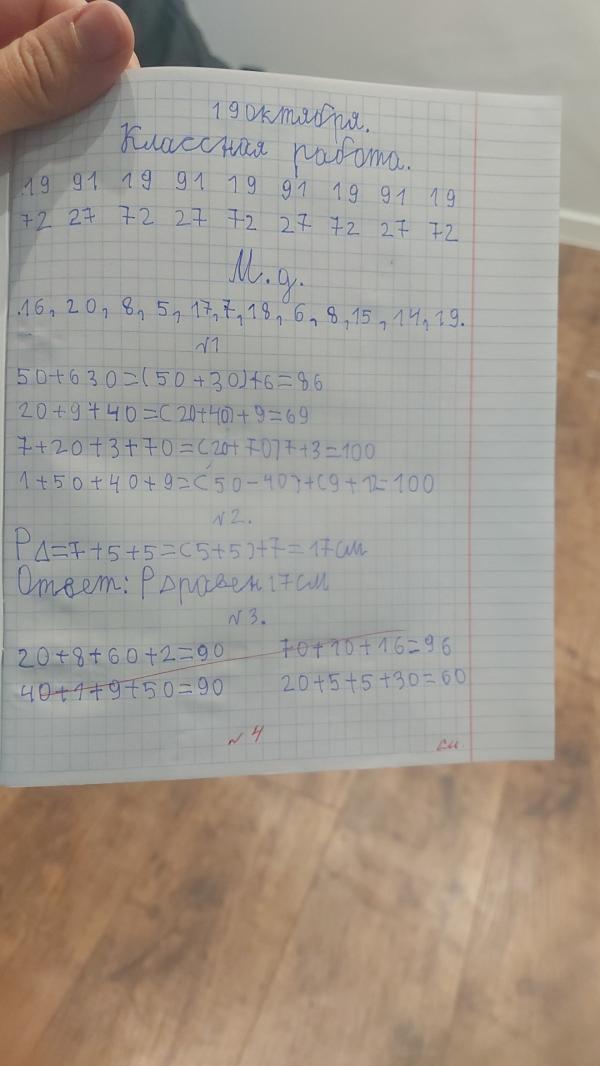 19 октября.
Классная работа.
19 91 19 91 19 91 19 91 19
72 27 72 27 72 27 72 27 72
М.д.
16, 20, 8, 5, 17, 7, 18, 6, 8, 15, 14, 19.
№1
50+630=(50+30)+6=86
20+9+40=(20+40)+9=69
7+20+3+70=(20+70)7+3=100
1+50+40+9=(50-40)+(9+1)=100
№2.
P∆=7+5+5=(5+5)+7=17см
Ответ: P∆равен 17см
№3.
20+8+60+2=90 70+10+16=96
40+1+9+50=90 20+5+5+30=60
№4 см